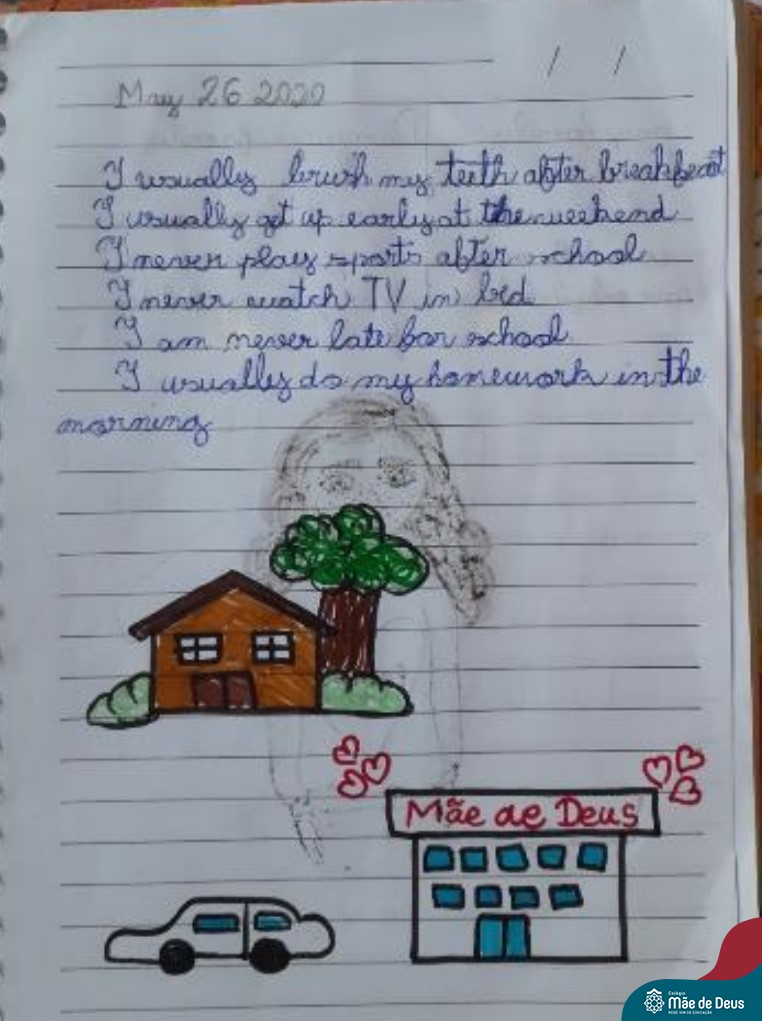 / /
May 26 2020
I usually brush my teeth after breakfast
I usually get up early at the weekend
I never play sports after school
I never watch TV in bed
I am never late for school
I usually do my homework in the
morning
Mãe de Deus
Colégio
Mãe de Deus
REDE ICM DE EDUCAÇÃO